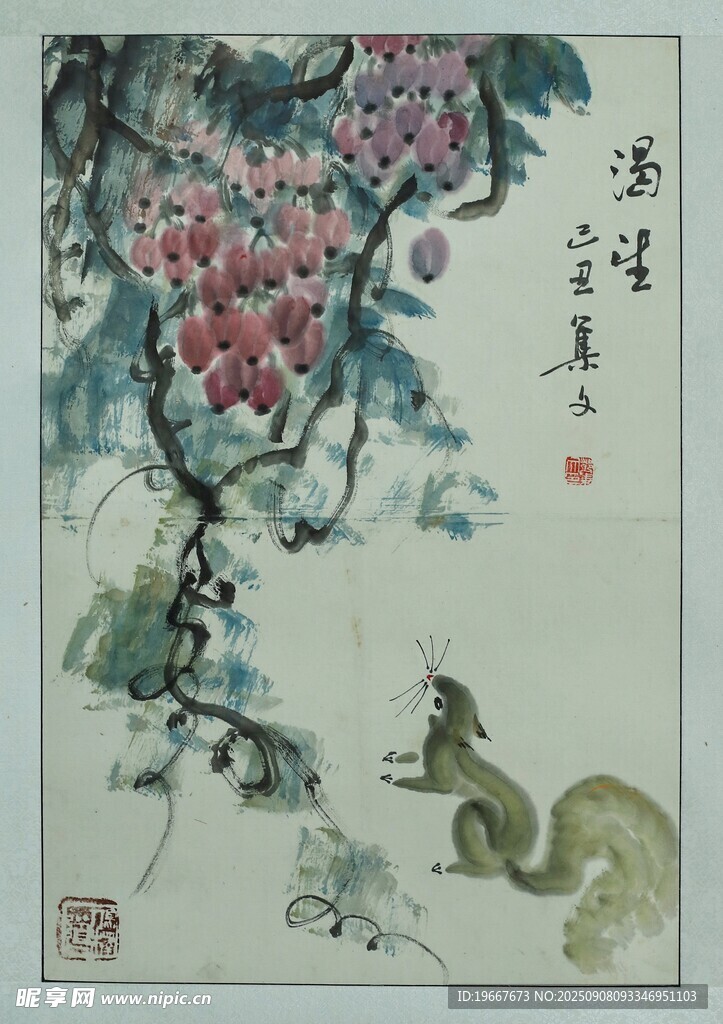 渴望
己丑集文
昵享网 www.nipic.cn
ID:19667673 NO:20250908093346951103